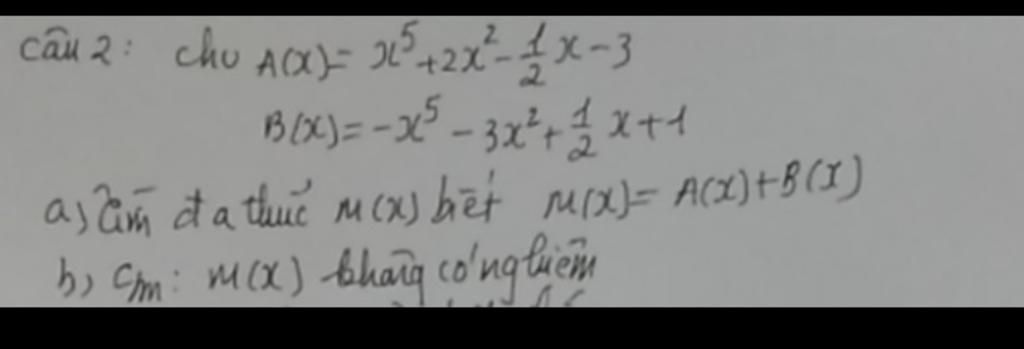 Câu 2: cho A(x) = x⁵ + 2x² - 1/2 x - 3
B(x) = -x⁵ - 3x² + 1/2 x + 1
a) Tìm đa thức M(x) biết M(x) = A(x) + B(x)
b) C/m: M(x) không có nghiệm